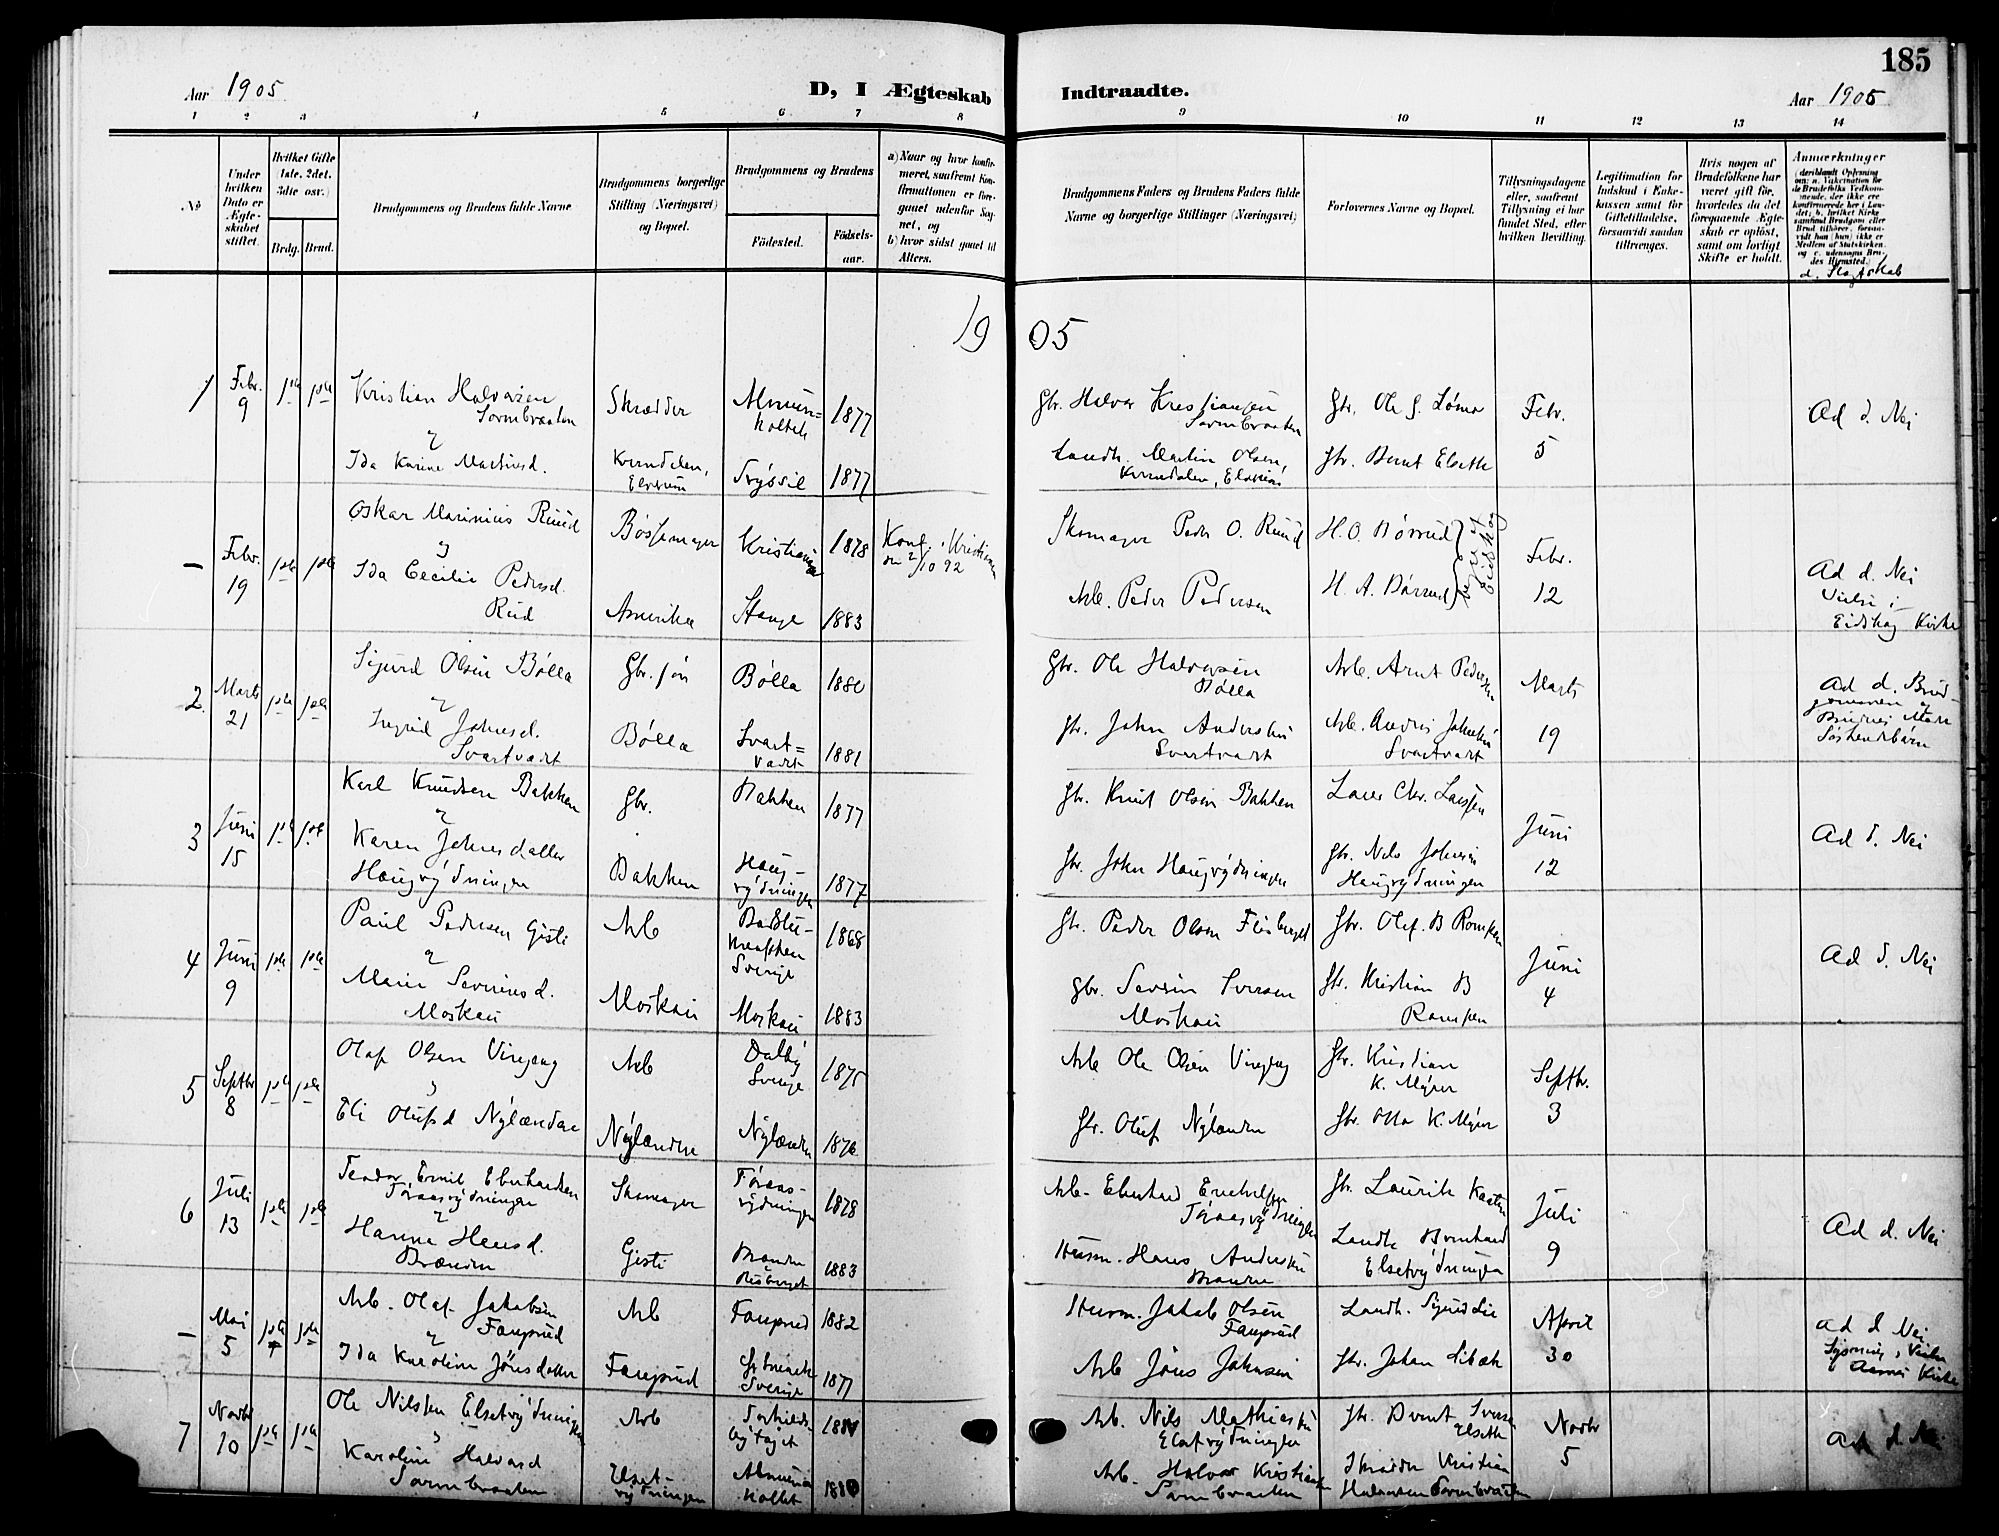 185
Aar 1905
D, I Ægteskab Indtraadte.
Aar 1905
1 2 3 4 5 6 7 8 9 10 11 12 13 14
No
Under hvilken Dato er Ægteskabet stiftet.
Hvilket Gifte (1ste, 2det, 3die osv.)
Brdg. Brud.
Brudgommens og Brudens fulde Navne
Brudgommens borgerlige Stilling (Næringsvei) og Bopæl.
Brudgommens og Brudens
Födested.
Födselsaar.
a) Naar og hvor konfirmeret, saafremt Konfirmationen er foregaaet udenfor Sognet, og
b) hvor sidst gaaet til Alters.
Brudgommens Faders og Brudens Faders fulde Navne og borgerlige Stillinger (Næringsvei)
Forlovernes Navne og Bopæl.
Tillysningsdagene eller, saafremt Tillysning ei har fundet Sted, efter hvilken Bevilling.
Legitimation for Indskud i Enkekassen samt for Giftetilladelse, forsaavidt saadan tiltrænges.
Hvis nogen af Brudefolkene har været gift før, hvorledes da det foregaaende Ægteskab er oplöst, samt om lovligt Skifte er holdt.
Anmærkninger
d. Slagtskab
1905
1 Febr. 9 1ste 1ste
Kristian Halvorsen Sormbraaten
&
Ida Karine Martinsd.
Skrædder
Kvindalen, Elverum
Almuenkoltet 1877
Trysil 1877
Gbr. Halvor Kristiansen Sormbraaten
Landh. Martin Olsen,
Gbr. Bernt Elseth
Febr. 5
Ad d. Nei
– Febr. 19 1ste 1ste
Oskar Marinius Ruud
&
Ida Cecilie Pedersd. Rud
Bøssemager
Amerika
Kristiania 1878
Stange 1883
Konf. i Kristiania
den 2/10 92
Skomager Peder O. Ruud
Arb. Peder Pedersen
H. O. Børrud
H. A. Børrud
Eidskog
Febr. 12
Ad d. Nei
Vielse i
Eidskog Kirke
2. Marts 21 1ste 1ste
Sigurd Olsen Bølla
&
Ingrid Johnsd. Svartvadt
Gbr. søn
Bølla
Bølla 1880
Svartvadt 1881
Gbr. Ole Halvorsen Bølla
Gbr. John Andersen Svartvadt
Arb. Arnt Pedersen
Svartvadt
Marts 19
Ad d. Brudgommen og
Brudens
Søskendebørn
3 Juni 15 1ste 1ste
Karl Knudsen Bakken
&
Karen Johnsdatter Haugrydningen
Gbr.
Bakken
Bakken 1877
Haugrydningen 1877
Gbr. Knut Olsen Bakken
Gbr. John Haugrydningen
Lars Chr. Larssen
Gbr. Nils Johnsen Haugrydningen
Juni 12
Ad d. Nei
4 Juni 9 1ste 1ste
Paul Pedersen Gisti
&
Marie Severinsd. Moskau
Arb
Moskau
Sverige 1868
Moskau 1883
Gbr. Peder Olsen
Gbr. Severin Iversen Moskau
Gbr. Olaf B
Gbr. Kristian B
Juni 4
Ad d. Nei
5 Septbr 8 1ste 1ste
Olaf Olsen Vingæng
&
Eli Olufsd Nylændne
Arb
Nylændne
Dalby Sverige 1875
Nylænden 1876
Arb Ole Olsen Vingæng
Gbr. Oluf Nylænden
Gbr. Kristian K. Myrer
Gbr. Otto K. Myrer
Septbr. 3
6 Juli 13 1ste 1ste
Teodor Emil Eberhardsen Føraasrydningen
&
Hanna Hansd. Brænden
Skomager
Gisti
Føraasrydningen 1878
Brænden 1883
Arb. Eberhard Føraasrydningen
Husm. Hans Andersen Brænden
Gbr. Laurits
Landh Bernhard Elsetrydningen
Juli 9
Ad d. Nei
– Mai 5 1ste 1ste
Arb. Olaf Jakobsen Fangerud
&
Ida Karoline Jönsdatter
Arb
Fangerud
Fangerud 1882
Sverige 1877
Husm. Jakob Olsen Fangerud
Arb Jöns Johnsen
Landh. Sigurd Lie
Gbr. Johan
April 30
Ad d Nei
Aasnes Kirke
7 Novbr 10 1ste 1ste
Ole Nilssen Elsetrydningen
&
Karoline Halvorsd Sormbraaten
Arb
Elsetrydningen
Arb. Nils Mathiassen Elsetrydningen
Arb. Halvor Kristiansen Sormbraaten
Gbr. Bernt Iversen Elseth
Skrædder Kristian Halvorsen Sormbraaten
Novbr 5
Ad d Nei